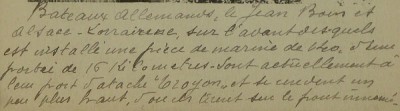 Bateaux Allemands, le Jean Boin et
Alsace-Lorrainenne, sur l'avant desquels
est installé une pièce de marine de 400, d'une
portée de 16 Kilometres. Sont actuellement à
leur port d'atache Troyon, et se meuvent un
peu plus haut, d'ou ils tirent sur le front